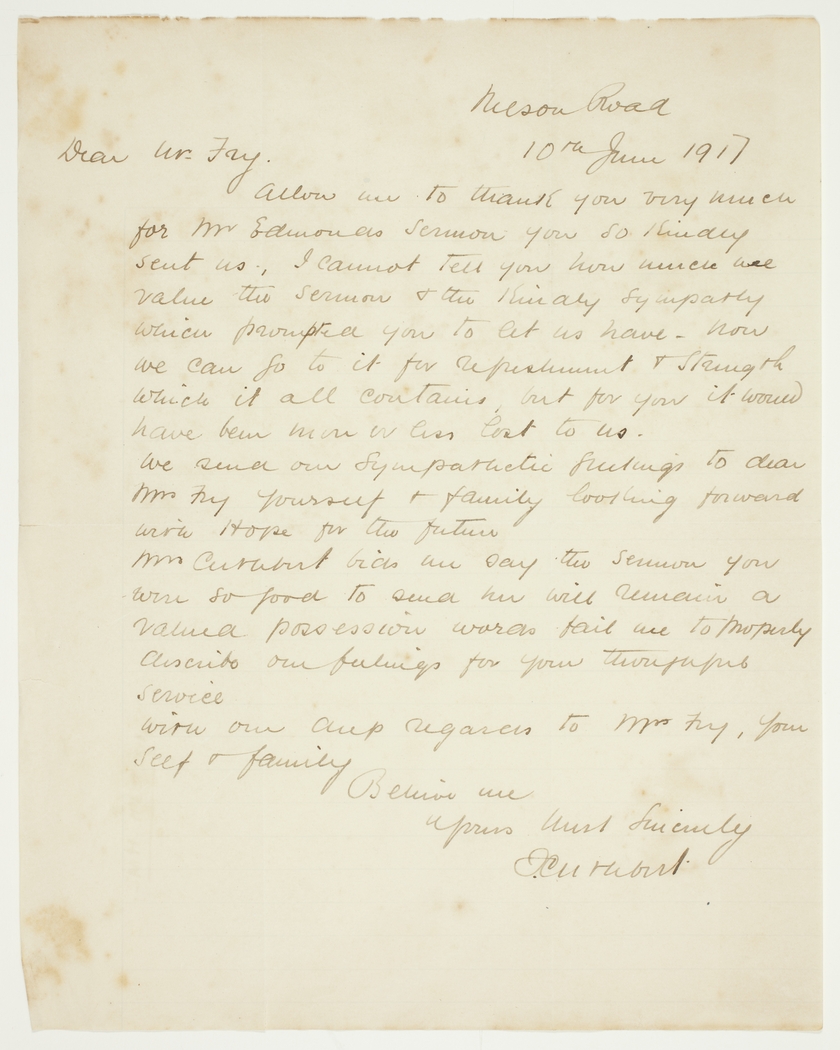 Nelson Road
10th June 1917
Dear Mr Fry.
Allow me to thank you very much
for Mr Edmonds Sermon you so Kindly
sent us., I cannot tell you how much we
value the Sermon & the Kindly Sympathy
which prompted you to let us have - now
we can go to it for refreshment & Strength
which it all contains, but for you it would
have been more or less lost to us.
We send our Sympathetic Greetings to dear
Mrs Fry yourself & family looking forward
with Hope for the future
Mrs Cuthbert bids me say the Sermon you
were so good to send her will remain a
valued possession words fail me to Properly
describe our feelings for your thoughtful
Service
with our deep regards to Mrs Fry, your
Self & family
Believe me
yours Most Sincerely
J. Cuthbert